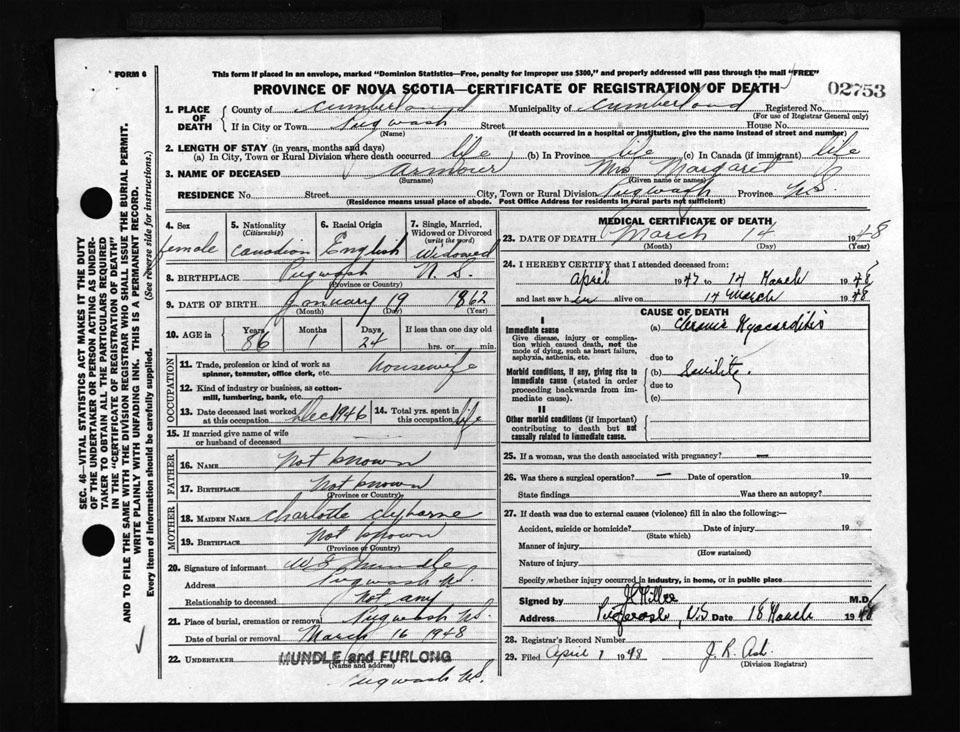 FORM 6
This form if placed in an envelope, marked "Dominion Statistics—Free, penalty for improper use $300," and properly addressed will pass through the mail "FREE"
PROVINCE OF NOVA SCOTIA—CERTIFICATE OF REGISTRATION OF DEATH
02753
1. PLACE OF DEATH
County of Cumberland Municipality of Cumberland Registered No.
(For use of Registrar General only)
If in City or Town Pugwash Street House No.
(Name) (If death occurred in a hospital or institution, give the name instead of street and number)
2. LENGTH OF STAY (in years, months and days)
(a) In City, Town or Rural Division where death occurred life (b) In Province life (c) In Canada (if immigrant) life
3. NAME OF DECEASED Armour Mrs Margaret
(Surname) (Given name or names)
RESIDENCE No. Street City, Town or Rural Division Pugwash Province N.S.
(Residence means usual place of abode. Post Office Address for residents in rural parts not sufficient)
4. Sex female
5. Nationality (Citizenship) Canadian
6. Racial Origin English
7. Single, Married, Widowed or Divorced (write the word) Widowed
8. BIRTHPLACE Pugwash N.S.
(Province or Country)
9. DATE OF BIRTH January 19 1862
(Month) (Day) (Year)
10. AGE in Years 86 Months 1 Days 24 If less than one day old hrs. or min.
OCCUPATION
11. Trade, profession or kind of work as spinner, teamster, office clerk, etc. housewife
12. Kind of industry or business, as cotton-mill, lumbering, bank, etc.
13. Date deceased last worked at this occupation Dec 1946
14. Total yrs. spent in this occupation life
15. If married give name of wife or husband of deceased —
FATHER
16. NAME not known
17. BIRTHPLACE not known
(Province or Country)
MOTHER
18. MAIDEN NAME Charlotte
19. BIRTHPLACE not known
(Province or Country)
20. Signature of informant Mundle
Address Pugwash N.S.
Relationship to deceased not any
21. Place of burial, cremation or removal Pugwash N.S.
Date of burial or removal March 16 1948
22. UNDERTAKER MUNDLE and FURLONG
(Name and address)
Pugwash N.S.
MEDICAL CERTIFICATE OF DEATH
23. DATE OF DEATH March 14 1948
(Month) (Day) (Year)
24. I HEREBY CERTIFY that I attended deceased from:
April 1947 to 14 March 1948
and last saw her alive on 14 March 1948
CAUSE OF DEATH
I
Immediate cause
Give disease, injury or complication which caused death, not the mode of dying, such as heart failure, asphyxia, asthenia, etc.
(a) Chronic Myocarditis
due to
Morbid conditions, if any, giving rise to immediate cause (stated in order proceeding backwards from immediate cause).
(b) Senility.
due to
(c)
II
Other morbid conditions (if important) contributing to death but not causally related to immediate cause.
25. If a woman, was the death associated with pregnancy? —
26. Was there a surgical operation? — Date of operation 19
State findings Was there an autopsy?
27. If death was due to external causes (violence) fill in also the following:—
Accident, suicide or homicide? Date of injury 19
(State which)
Manner of injury
(How sustained)
Nature of injury
Specify whether injury occurred in industry, in home, or in public place
Signed by M.D.
Address Pugwash, N.S. Date 18 March 1948
28. Registrar's Record Number
29. Filed April 1 1948 J. R. Ash
(Division Registrar)
SEC. 46—VITAL STATISTICS ACT MAKES IT THE DUTY
OF THE UNDERTAKER OR PERSON ACTING AS UNDER-
TAKER TO OBTAIN ALL THE PARTICULARS REQUIRED
IN THE "CERTIFICATE OF REGISTRATION OF DEATH"
AND TO FILE THE SAME WITH THE DIVISION REGISTRAR WHO SHALL ISSUE THE BURIAL PERMIT.
WRITE PLAINLY WITH UNFADING INK. THIS IS A PERMANENT RECORD.
Every item of information should be carefully supplied. (See reverse side for instructions.)